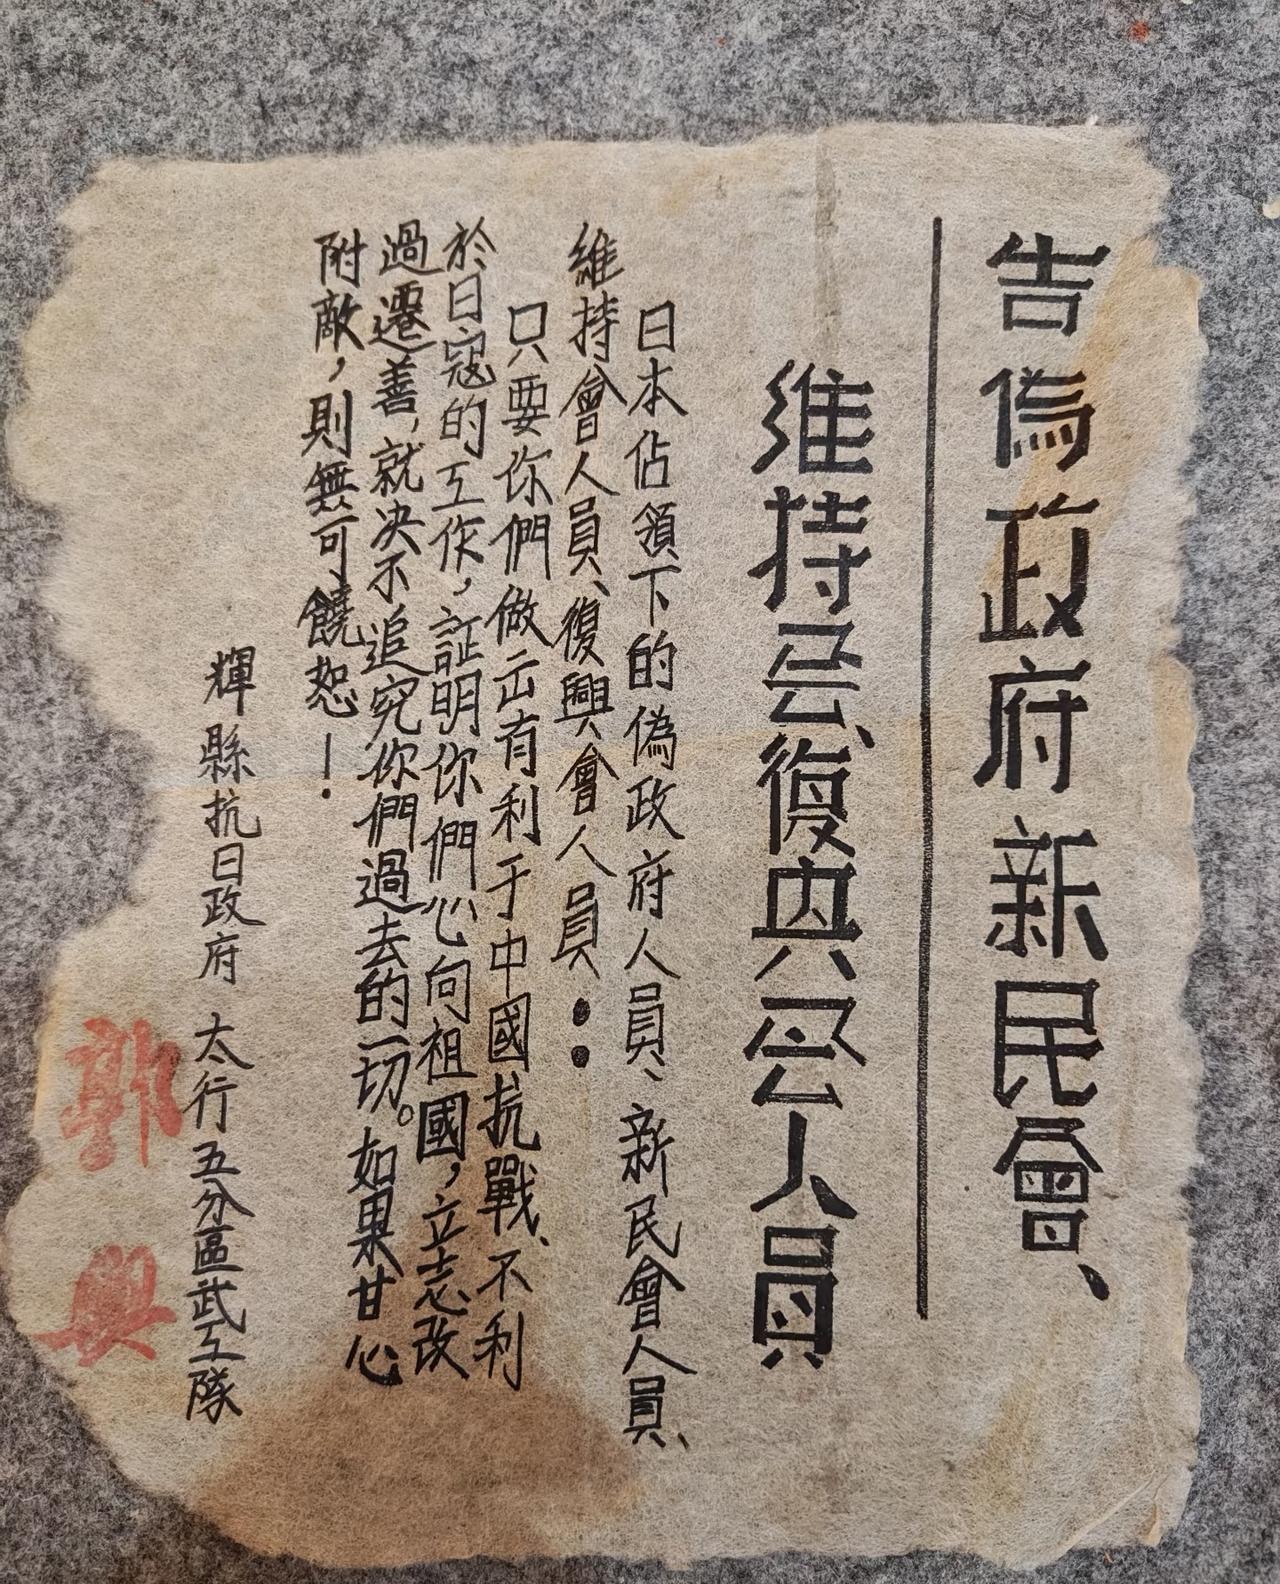 告偽政府新民會、
維持会、復兴会人員
日本佔領下的偽政府人員、新民會人員、
維持會人員、復興會人員：
只要你們做出有利于中國抗戰、不利
於日寇的工作，証明你們心向祖國，立志改
過遷善，就决不追究你們過去的一切。如果甘心
附敵，則無可饒恕！
輝縣抗日政府 太行五分區武工隊
郭興